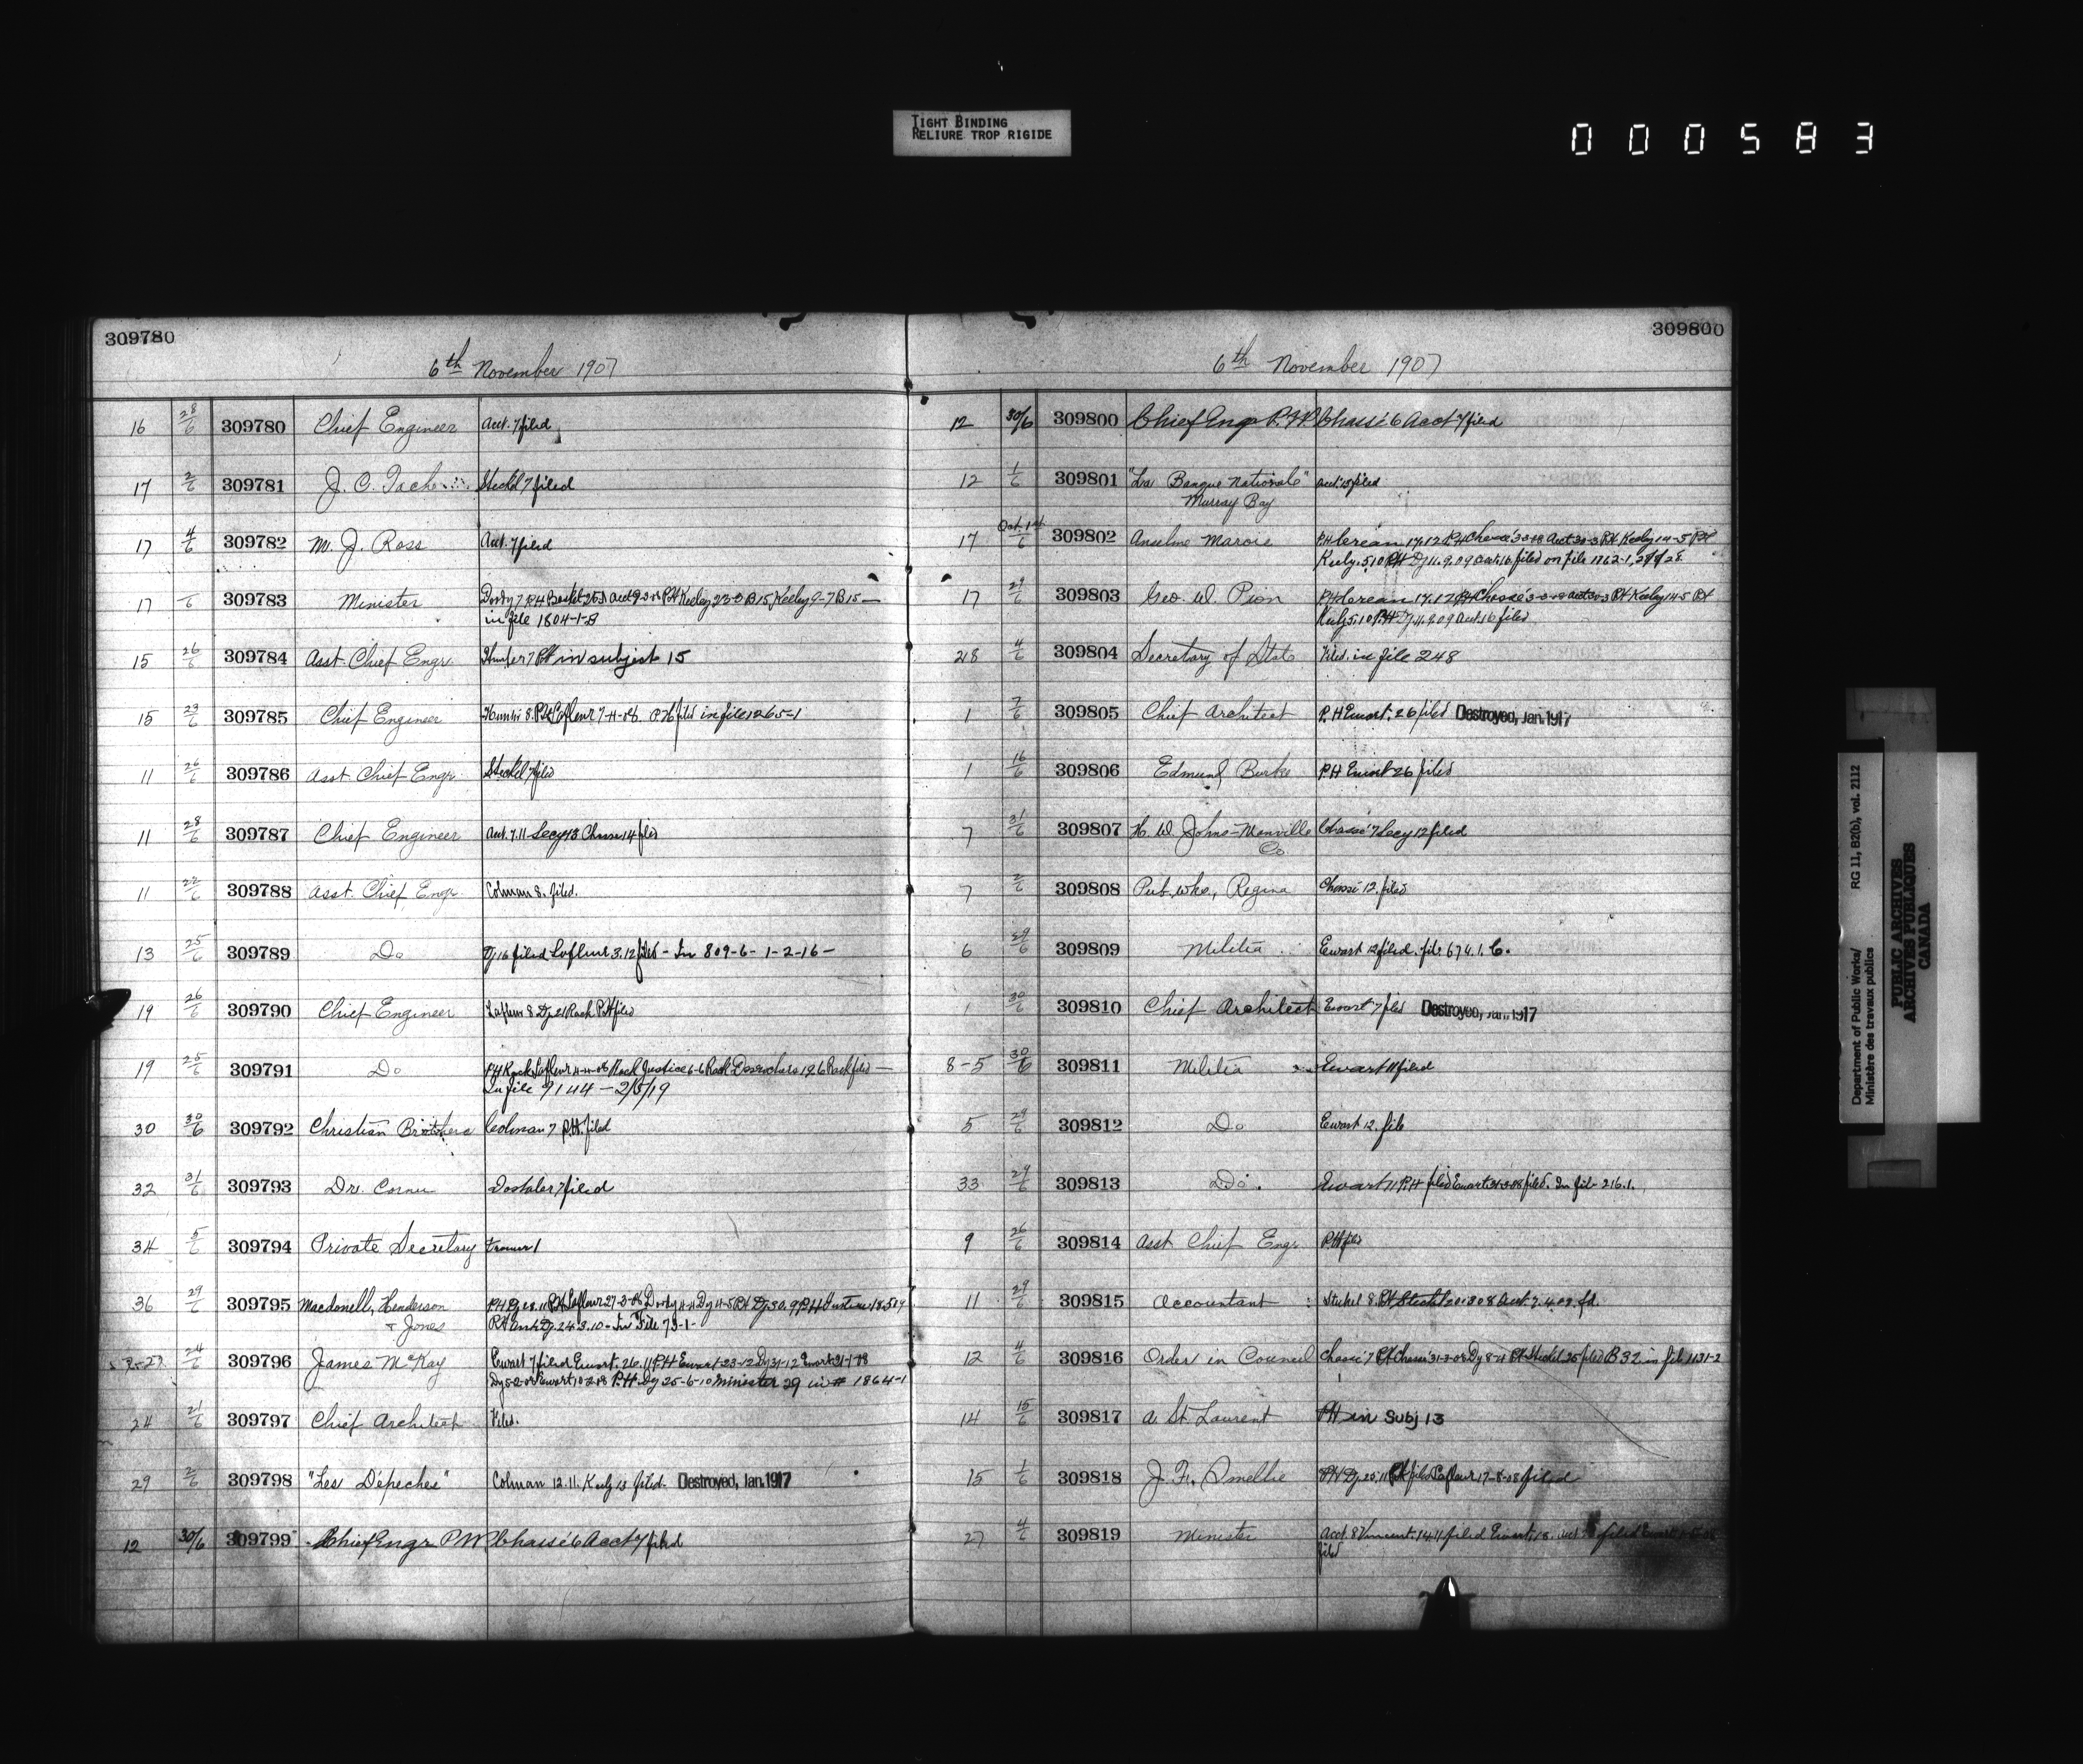 TIGHT BINDING
RELIURE TROP RIGIDE
000583
309780
6th November 1907
16 28/6 309780 Chief Engineer Acct. 7 filed
17 2/6 309781 J. C. Tache Steckel 7 filed
17 4/6 309782 M. J. Ross Acct. 7 filed
17 309783 Minister Dordy 7 P.H. Keeley 9-7 B15 —
in file 1804-1-B
15 26/6 309784 Asst. Chief Engr. PH in subject 15
15 29/6 309785 Chief Engineer Lafleur 7-11-08. P H filed in file 1265-1
11 26/6 309786 Asst Chief Engr. Steckel 7 filed
11 28/6 309787 Chief Engineer Acct. 7.11 Secy 13 Chasse 14 filed
11 22/6 309788 Asst. Chief Engr. Colman 8. filed.
13 25/6 309789 Do Dy 16 filed Lafleur 3.12 filed - In 809-6-1-2-16-
19 26/6 309790 Chief Engineer Lafleur 8 Dy 21 Rach PH filed
19 25/6 309791 Do
In file 9144 — 2/5/19
30 30/6 309792 Christian Brothers Colman 7 P.H. filed
32 31/6 309793 Dr. Dostaler 7 filed
34 5/6 309794 Private Secretary
36 29/6 309795 Macdonell, Henderson
& Jones In File 73-1-
24/6 309796 James McKay Ewart 7 filed Ewart. 26.11 P.H Ewart 23-12 Dy 31-12
P.H. Dy 25-6-10 Minister 29 in # 1864-1
24 21/6 309797 Chief Architect Filed.
29 2/6 309798 "Les Dépeches" Colman 12.11. Keely 13 filed. Destroyed, Jan. 1917
12 30/6 309799 Chief Engr Chassé 6 Acct 7 filed
309800
6th November 1907
12 30/6 309800 Chief Engr Chassé 6 Acct 7 filed
12 1/6 309801 "La Banque Nationale" Acct. 13 filed
Murray Bay
17 Oct. 309802 Anselme Marois
Keely. 5.10 PH Dy 11.9.09 Acct. 16 filed on File 1762-1,
17 29/6 309803 Geo. W. Pion
Keely 5.10 PH Dy 11.9.09 Acct. 16 filed
28 4/6 309804 Secretary of State Filed. in file 248
1 7/6 309805 Chief Architect P. H Ewart. 26 filed Destroyed, Jan. 1917
1 16/6 309806 Edmund Burke P.H Ewart 26 filed
7 31/6 309807 H. W. Johns-Manville Chassé 7 Secy 12 filed
Co.
7 2/6 309808 Pub. Wks, Regina Chassé 12. filed
6 29/6 309809 Militia Ewart 12 filed. file 674.1. C.
1 30/6 309810 Chief Architect Ewart 7 filed Destroyed, Jan. 1917
8-5 30/6 309811 Militia Ewart 11 filed
5 29/6 309812 Do Ewart 12. file
33 29/6 309813 Do. Ewart 11 P.H filed Ewart 31-3-08 filed. In file 216.1.
9 26/6 309814 Asst Chief Engr. P.H filed
11 29/6 309815 Accountant Steckel 8. PH Steckel 20-3-08 Acct. 7.4.09. fd.
12 4/6 309816 Order in Council Chassé 7 PH Chassé 31-3-08 Dy 8-4 PH Steckel 25 filed B 32 in file 1131-2
14 15/6 309817 A. St. Laurent PH in Subj 13
15 1/6 309818 J. F. PH Dy. 25.11 PH filed Lafleur 17-8-08 filed
27 4/6 309819 Minister Acct. 8 Vincent. 14.11 filed Ewart. 18.
filed
Department of Public Works/
Ministère des travaux publics
RG 11, B2(b), vol. 2112
PUBLIC ARCHIVES
ARCHIVES PUBLIQUES
CANADA